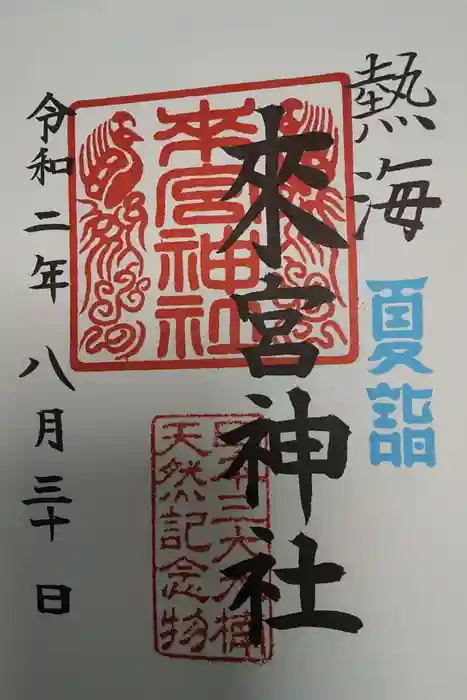 熱海
夏詣
來宮神社
來宮神社
天然記念物
令和二年八月三十日